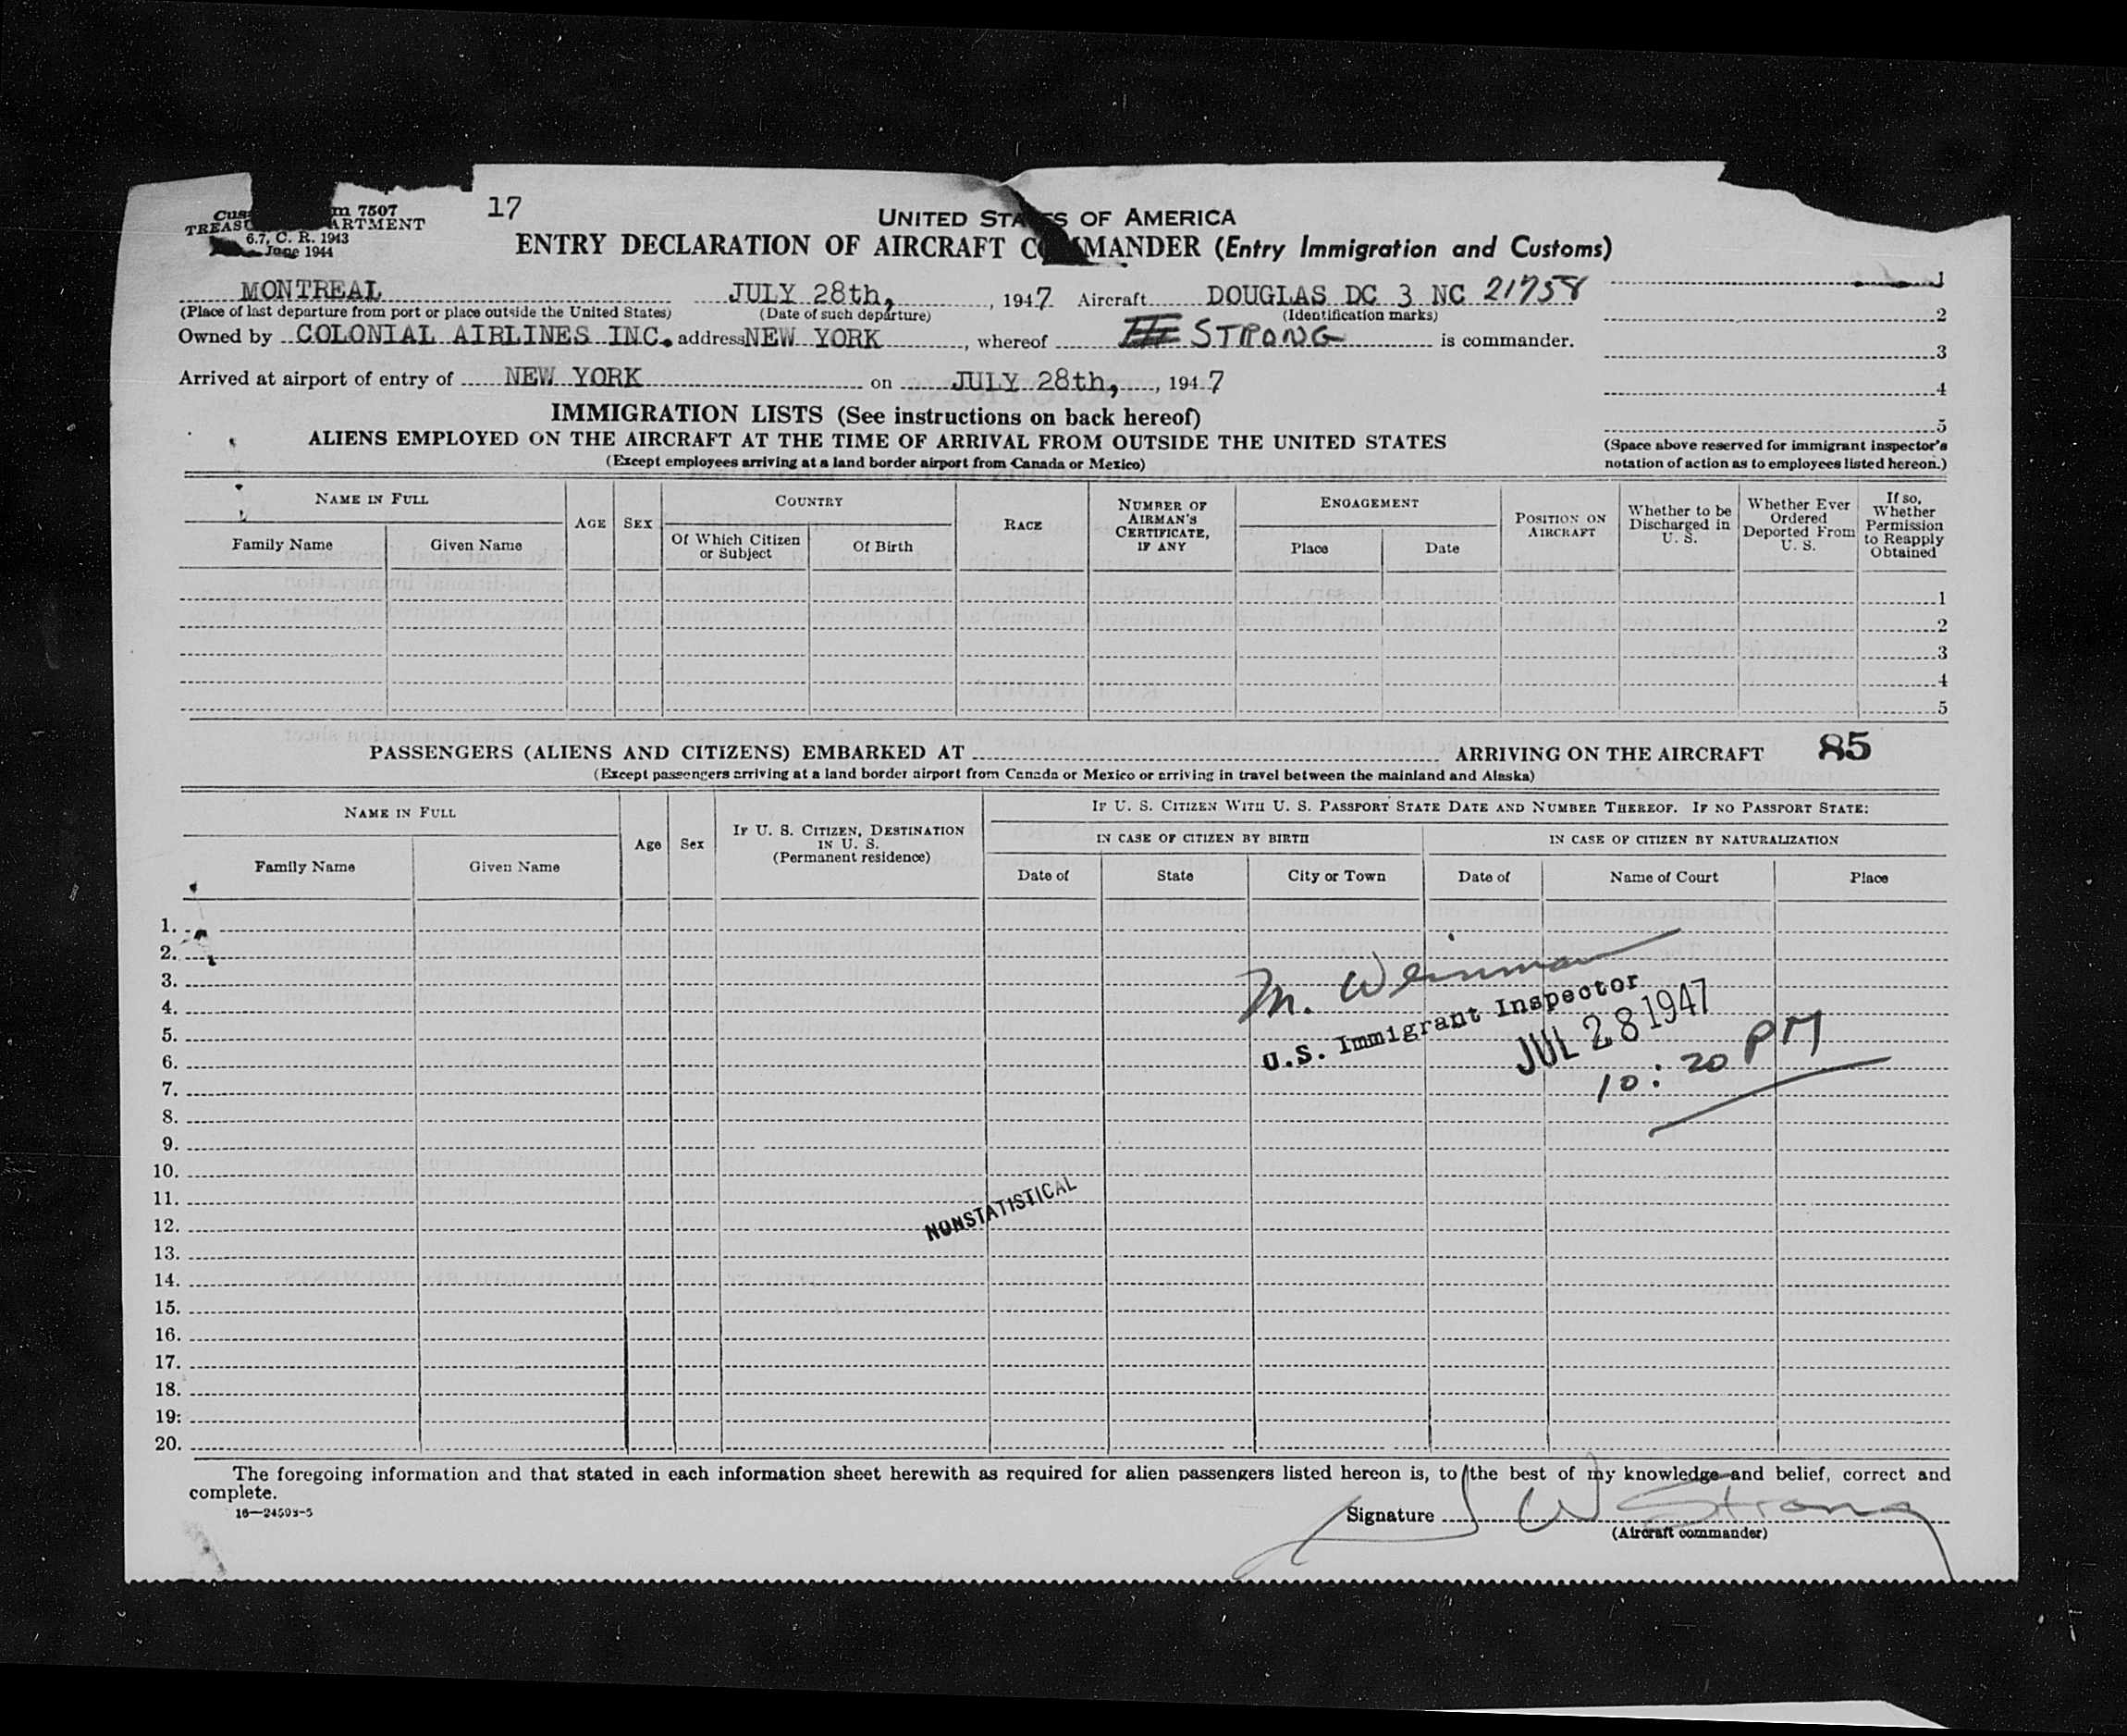 17
Cus m 7507
TREASU ARTMENT
6.7, C. R. 1943
June 1944
UNITED STATES OF AMERICA
ENTRY DECLARATION OF AIRCRAFT COMMANDER (Entry Immigration and Customs)
MONTREAL JULY 28th, , 1947 Aircraft DOUGLAS DC 3 NC 21758
(Place of last departure from port or place outside the United States) (Date of such departure) (Identification marks)
Owned by COLONIAL AIRLINES INC. address NEW YORK , whereof STRONG is commander.
Arrived at airport of entry of NEW YORK on JULY 28th, , 1947
1
2
3
4
5
(Space above reserved for immigrant inspector's
notation of action as to employees listed hereon.)
IMMIGRATION LISTS (See instructions on back hereof)
ALIENS EMPLOYED ON THE AIRCRAFT AT THE TIME OF ARRIVAL FROM OUTSIDE THE UNITED STATES
(Except employees arriving at a land border airport from Canada or Mexico)
NAME IN FULL
Family Name
Given Name
AGE
SEX
COUNTRY
Of Which Citizen
or Subject
Of Birth
RACE
NUMBER OF
AIRMAN'S
CERTIFICATE,
IF ANY
ENGAGEMENT
Place
Date
POSITION ON
AIRCRAFT
Whether to be
Discharged in
U. S.
Whether Ever
Ordered
Deported From
U. S.
If so,
Whether
Permission
to Reapply
Obtained
1
2
3
4
5
PASSENGERS (ALIENS AND CITIZENS) EMBARKED AT ARRIVING ON THE AIRCRAFT 85
(Except passengers arriving at a land border airport from Canada or Mexico or arriving in travel between the mainland and Alaska)
NAME IN FULL
Family Name
Given Name
Age
Sex
IF U. S. CITIZEN, DESTINATION
IN U. S.
(Permanent residence)
IF U. S. CITIZEN WITH U. S. PASSPORT STATE DATE AND NUMBER THEREOF. IF NO PASSPORT STATE:
IN CASE OF CITIZEN BY BIRTH
IN CASE OF CITIZEN BY NATURALIZATION
Date of
State
City or Town
Date of
Name of Court
Place
1.
2.
3.
4.
5.
6.
7.
8.
9.
10.
11.
12.
13.
14.
15.
16.
17.
18.
19.
20.
M. Weinman
U.S. Immigrant Inspector
JUL 28 1947
10:20 PM
NONSTATISTICAL
The foregoing information and that stated in each information sheet herewith as required for alien passengers listed hereon is, to the best of my knowledge and belief, correct and
complete.
16—24503-5
Signature J W Strong
(Aircraft commander)